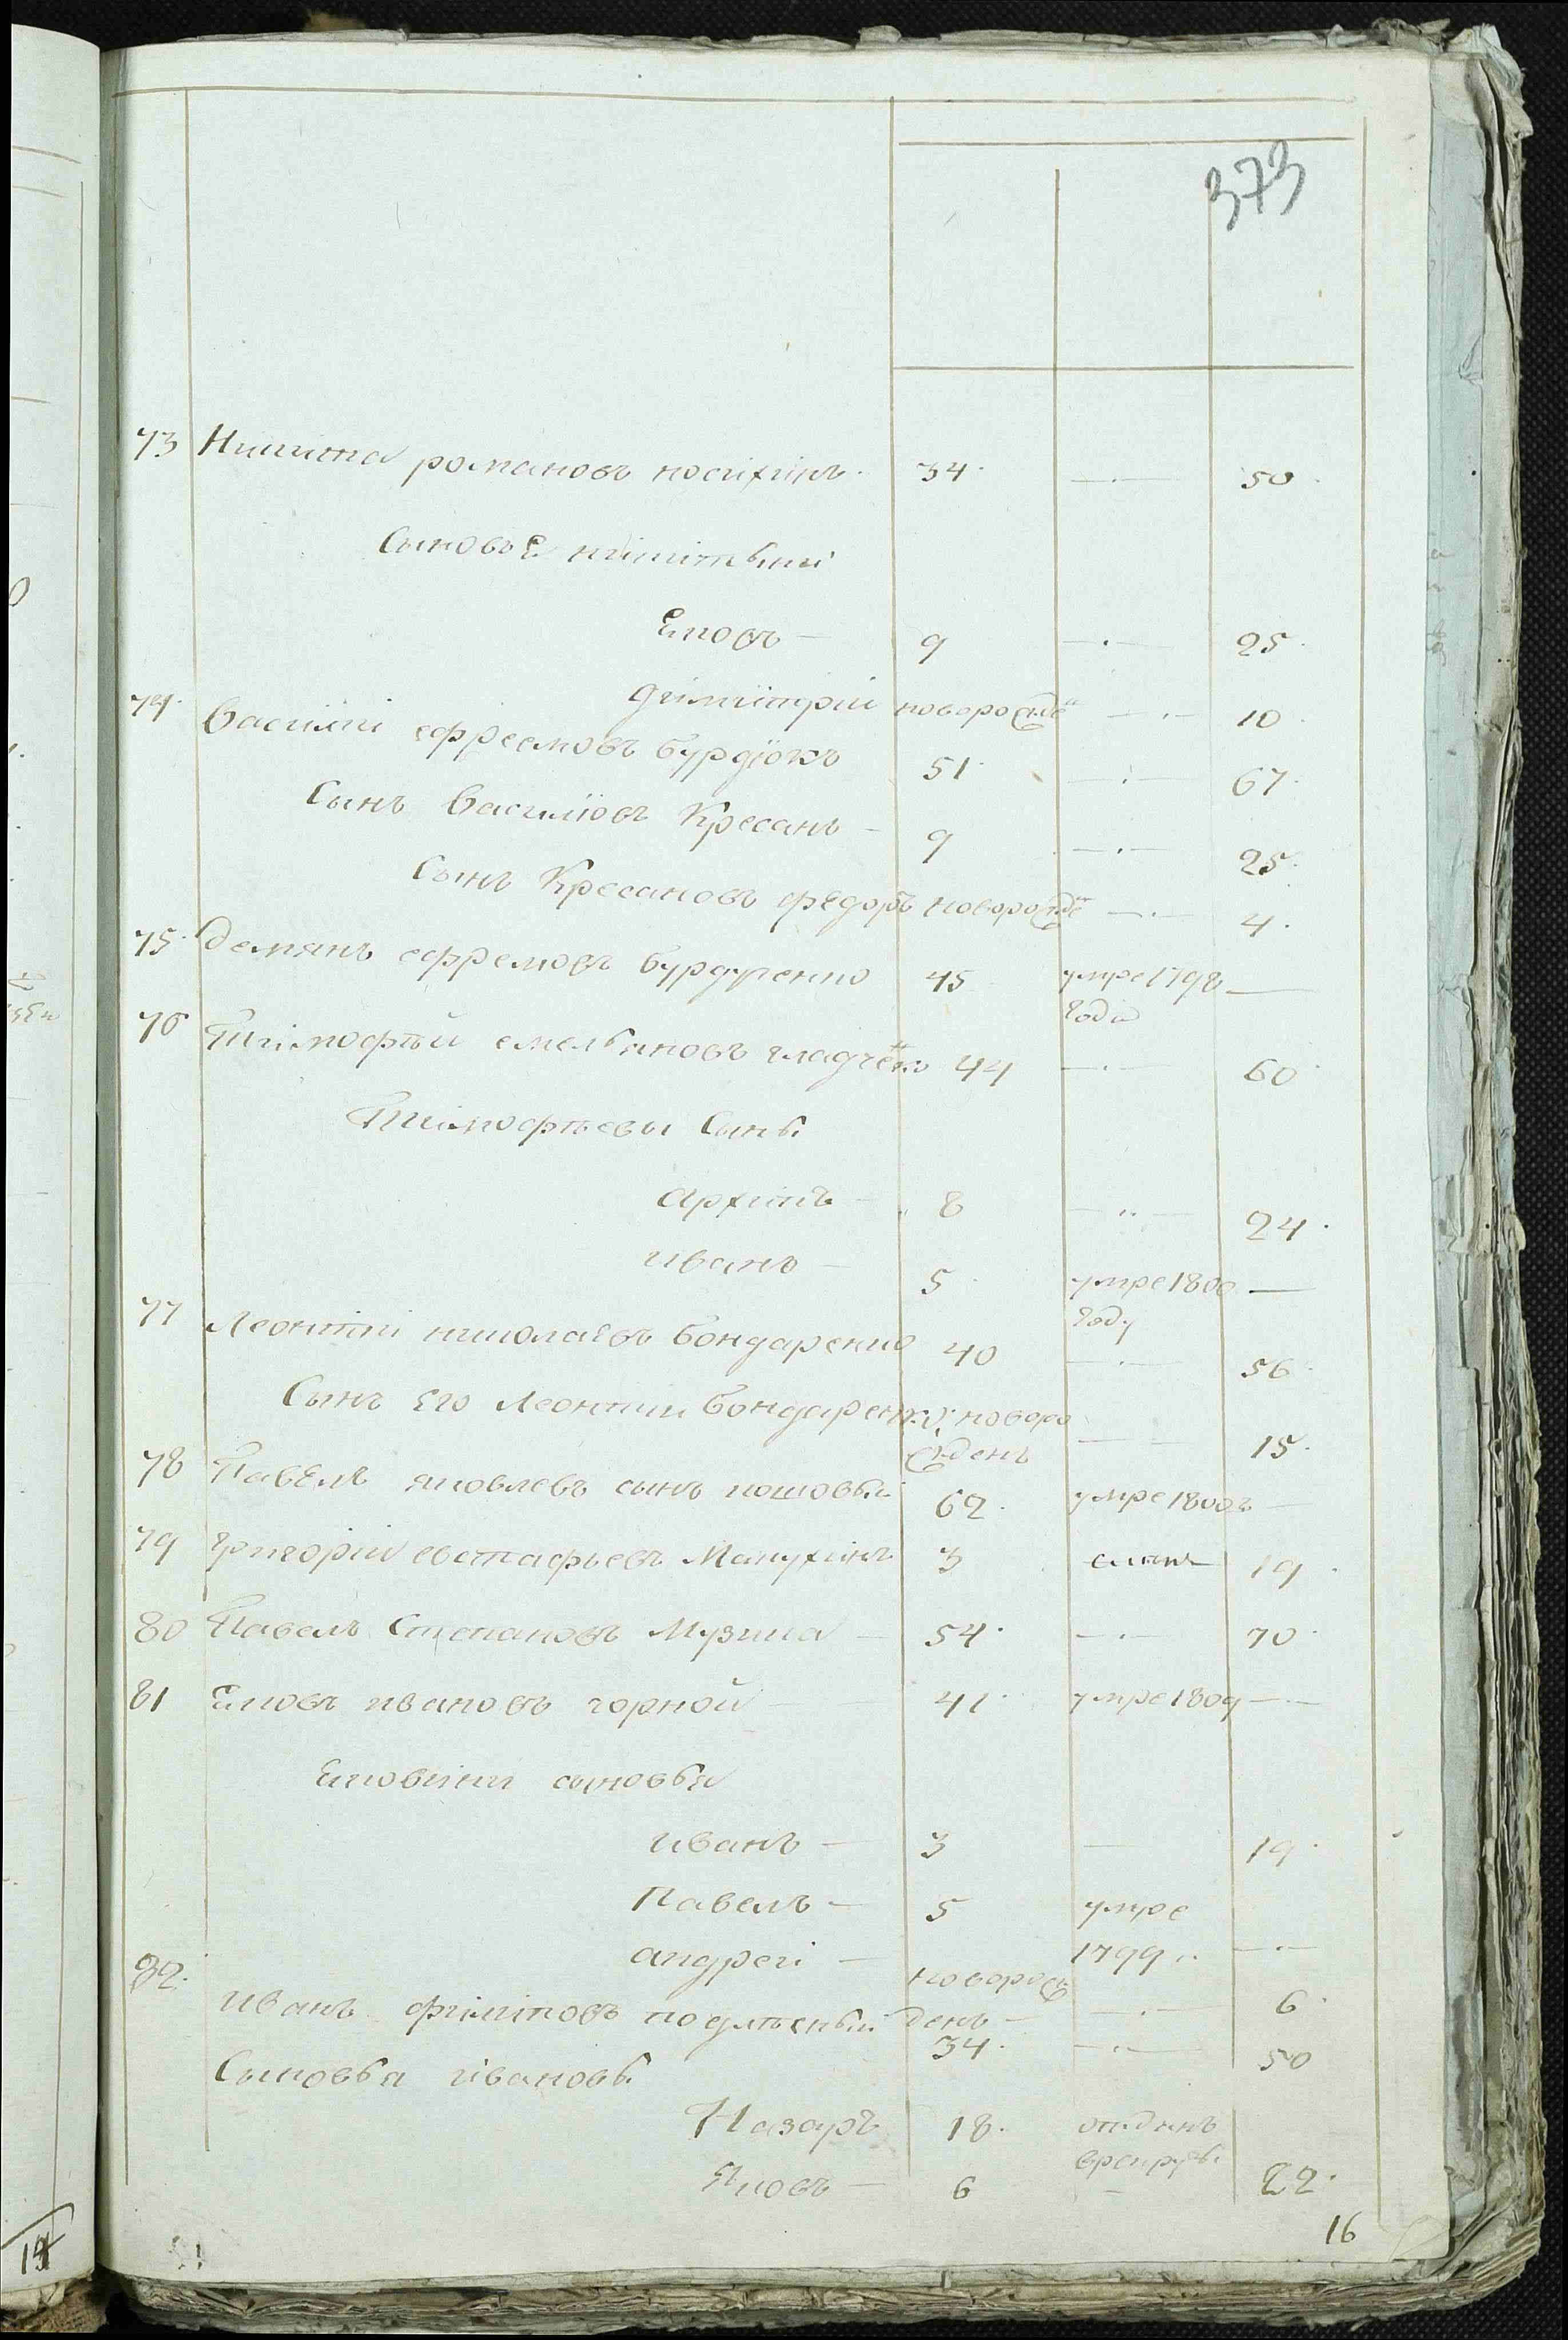 373
73 Никита романовъ носихинъ. 34. — 50.
Сыновъѐ никитыни
Ековъ — 9 — 25.
димитрій новорожде — 10.
74. Василїй ефреемовъ бурдюкъ 51. — 67.
Сынъ Василювъ Кресанъ — 9 — 25.
Сынъ Кресановъ федоръ новорожде — 4.
75. демянъ ефремовъ бурдуренко 45 умре 1798 —
года
76 Тимофѣй емельяновъ гладченко 44 — 60.
Тимофѣевы Сыны
архипъ — 8 — 24.
иванъ — 5. умре 1800 —
году
77 Леонтїй николаевъ бондаренко 40 — 56.
Сынъ Его Леонтии бондаренко, новоро
жденъ — 15.
78 Павелъ яковлевъ сынъ кошовый 62. умре 1800г —
79 Григорїй евстафьевъ Манухинъ 3 слепъ 19.
80 Павелъ Степановъ Музика — 54. — 70.
81 Ековъ ивановъ чорной — 41. умре 1809 —
Ековини сыновья
иванъ — 3 — 19.
Павелъ — 5 умре
1799.. —
андреі — новорож
денъ — 6.
82. иванъ филиповъ подлѣсный 34. — 50
Сыновья ивановы
Назаръ 18. отданъ
врекруты
Яковъ — 6 — 22.
16